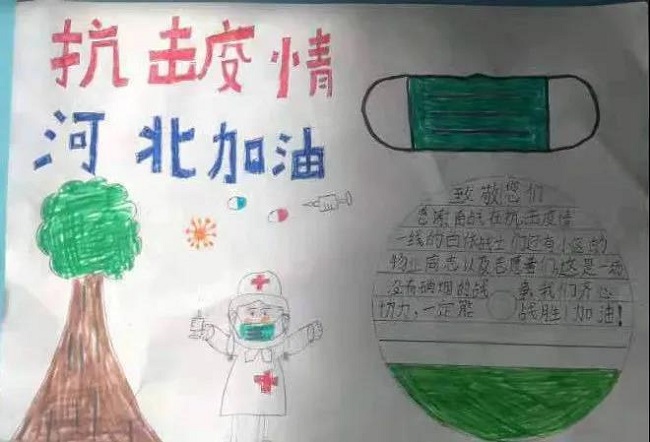 抗击疫情
河北加油
致敬您们
感谢奋战在抗击疫情
一线的白衣战士们还有小区的
物业同志以及志愿者们,这是一场
没有硝烟的战争,我们齐心
协力,一定能战胜!加油!